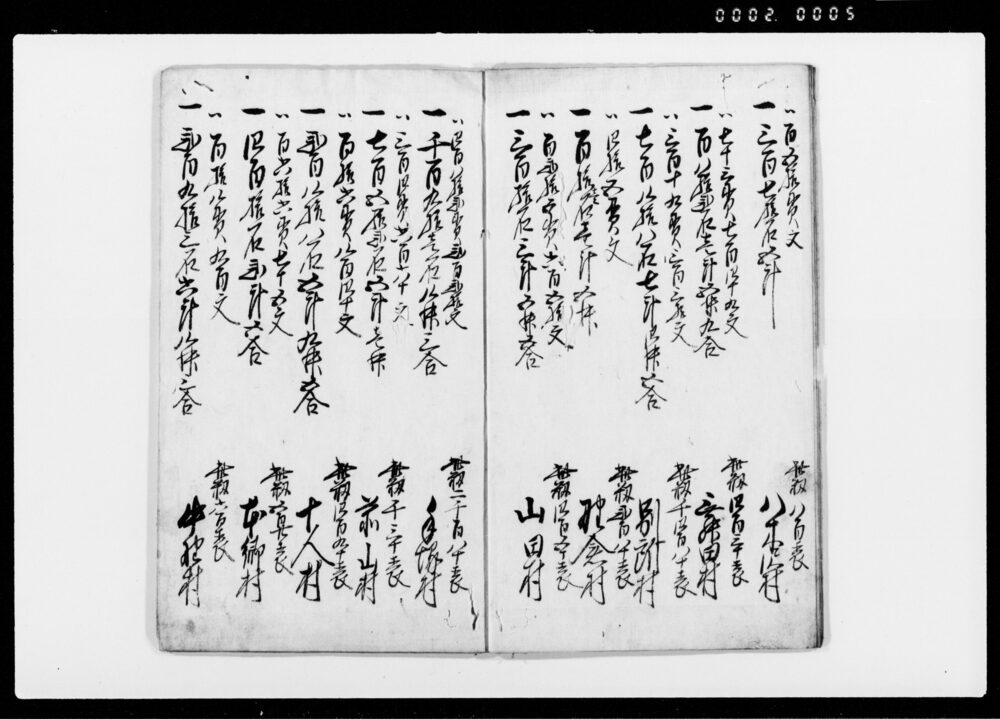 〃百五拾貫文　籾八百表
一三百七拾石五斗　八木沢村
〃七十三貫七百四十九文　籾四百三十表
一百八拾弐石壱斗五升九合　舞田村
〃三百十九貫三百三拾文　籾千四百八十表
一七百八拾八石七斗四升五合　別所村
〃四拾五貫文　籾弐百八十表
一百拾壱石壱斗五升　野倉村
〃百弐拾五貫六百五拾文　籾四百五十表
一三百拾石三斗五升五合　山田村
〃四百八拾弐貫弐百弐拾文　籾二千百八十表
一千百九拾壱石八升三合　手塚村
〃三百四貫六百六十文　籾千三十表
一七百五拾弐石五斗壱升　前山村
〃百拾六貫八百四十文　籾四百九十表
一弐百八拾八石五斗九升五合　十人村
〃百六拾六貫七十五文　籾
一四百拾石弐斗五合　本郷村
〃百拾八貫九百文　籾六百表
一弐百九拾三石六斗八升三合　中野村
0002 0005